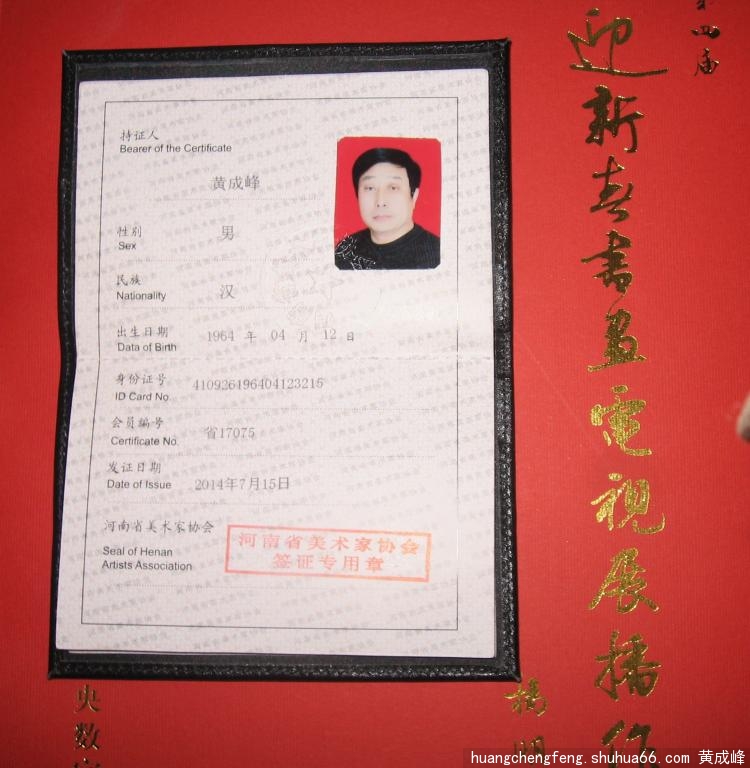 持证人
Bearer of the Certificate
黄成峰
性别
Sex
男
民族
Nationality
汉
出生日期
Data of Birth
1964 年 04 月 12 日
身份证号
ID Card No.
410926196404123215
会员编号
Certificate No.
省17075
发证日期
Date of Issue
2014年7月15日
河南省美术家协会
Seal of Henan
Artists Association
河南省美术家协会
签证专用章
四届
迎新春书画電視展播作
播
央数字
huangchengfeng.shuhua66.com 黄成峰